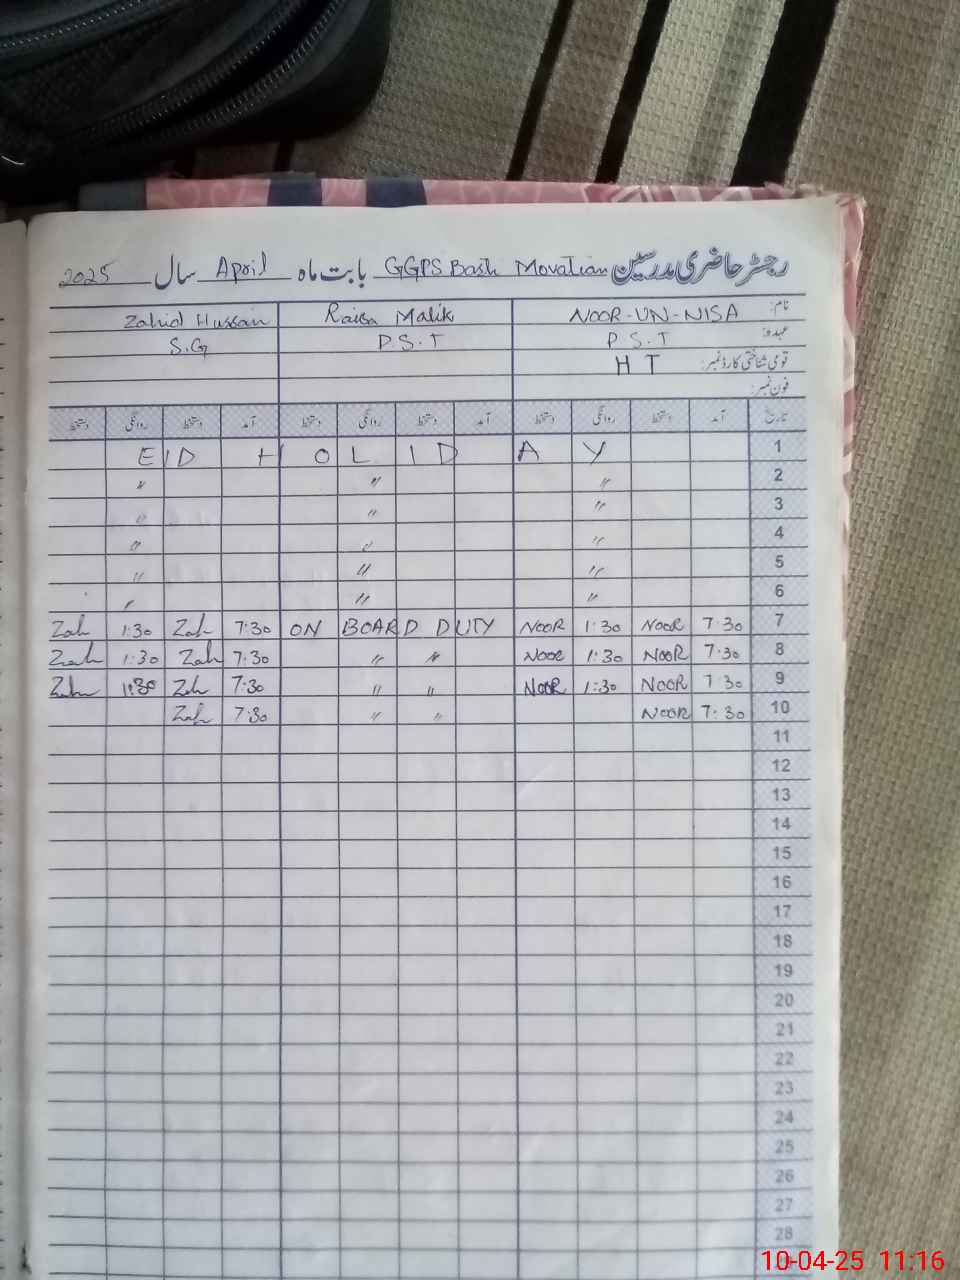 رجسٹر حاضری مدرسین GGPS Basti Movatian بابت ماہ April سال 2025
نام: NOOR-UN-NISA Raisa Malik Zahid Hussan
عہدہ: P.S.T P.S.T S.G
قومی شناختی کارڈ نمبر: H T
فون نمبر:
تاریخ آمد دستخط روانگی دستخط آمد دستخط روانگی دستخط آمد دستخط روانگی دستخط
1 EID HOLIDAY
2 〃 〃 〃
3 〃 〃 〃
4 〃 〃 〃
5 〃 〃 〃
6 〃 〃 〃
7 7:30 NOOR 1:30 NOOR ON BOARD DUTY 7:30 Zah 1:30 Zah
8 7:30 NOOR 1:30 NOOR 〃 〃 7:30 Zah 1:30 Zah
9 7:30 NOOR 1:30 NOOR 〃 〃 7:30 Zah 1:30 Zah
10 7:30 NOOR 〃 〃 7:30 Zah
11
12
13
14
15
16
17
18
19
20
21
22
23
24
25
26
27
28
10-04-25 11:16